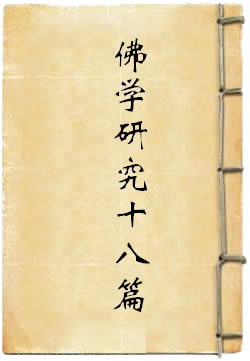 佛学研究十八篇